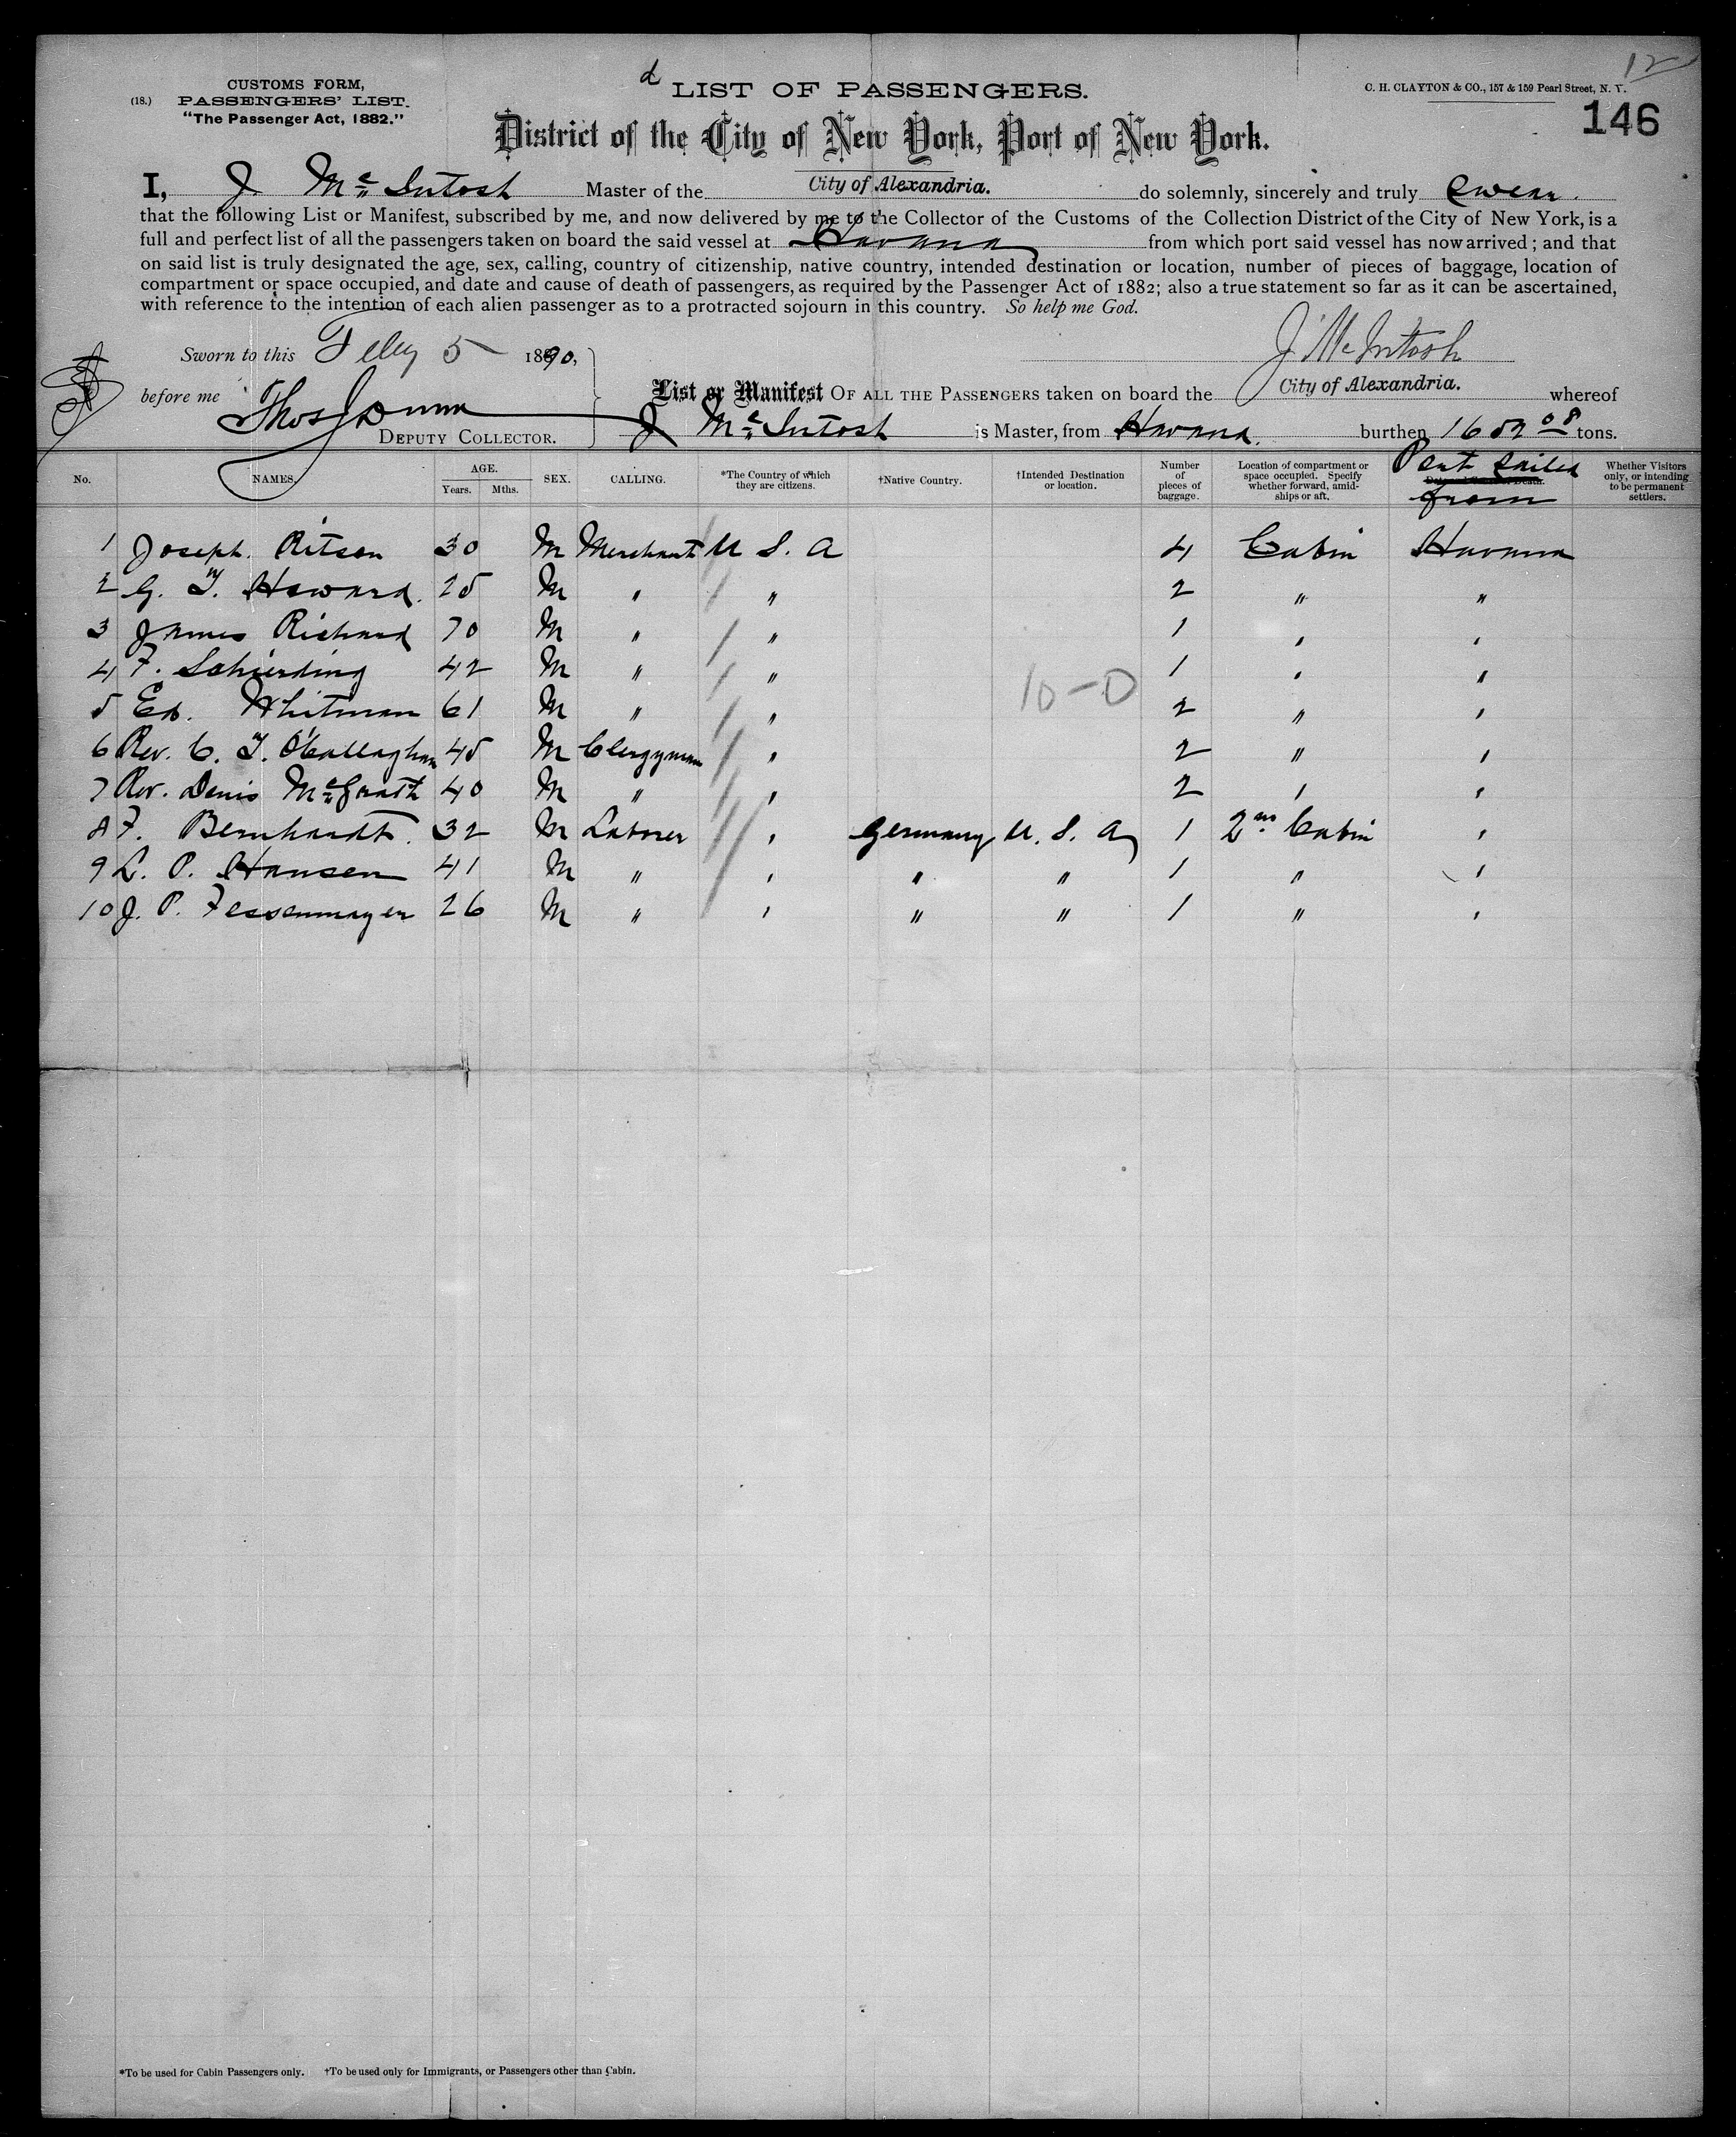 12
CUSTOMS FORM,
(18.) PASSENGERS' LIST.
"The Passenger Act, 1882."
d LIST OF PASSENGERS.
C. H. CLAYTON & CO., 157 & 159 Pearl Street, N. Y.
146
District of the City of New York, Port of New York.
I, J. Mc Intosh Master of the City of Alexandria. do solemnly, sincerely and truly swear.
that the following List or Manifest, subscribed by me, and now delivered by me to the Collector of the Customs of the Collection District of the City of New York, is a
full and perfect list of all the passengers taken on board the said vessel at Havana from which port said vessel has now arrived; and that
on said list is truly designated the age, sex, calling, country of citizenship, native country, intended destination or location, number of pieces of baggage, location of
compartment or space occupied, and date and cause of death of passengers, as required by the Passenger Act of 1882; also a true statement so far as it can be ascertained,
with reference to the intention of each alien passenger as to a protracted sojourn in this country. So help me God.
Sworn to this Feby 5 1890,
J McIntosh
before me Thos J Dunn
DEPUTY COLLECTOR.
List or Manifest OF ALL THE PASSENGERS taken on board the City of Alexandria. whereof
J Mc Intosh is Master, from Havana. burthen 1652 08 tons.
No. NAMES. AGE. Years. Mths. SEX. CALLING. *The Country of which they are citizens. †Native Country. †Intended Destination or location. Number of pieces of baggage. Location of compartment or space occupied. Specify whether forward, amidships or aft. Port sailed from Whether Visitors only, or intending to be permanent settlers.
1 Joseph Ritson 30 M Merchant U S. A 4 Cabin Havana
2 G. W. Howard. 25 M " " 2 " "
3 James Richard 70 M " " 1 " "
4 F. Schierding 42 M " " 1 " "
10-0
5 Ed. Whitman 61 M " " 2 " "
6 Rev. C. T. O'Callaghan 45 M Clergyman " 2 " "
7 Rev. Denis McGrath 40 M " " 2 " "
8 F. Bernhardt. 32 M Laborer " Germany U. S. A 1 2nd Cabin "
9 L. P. Hansen 41 M " " " " 1 " "
10 J. P. Fessenmayer 26 M " " " " 1 " "
*To be used for Cabin Passengers only. †To be used only for Immigrants, or Passengers other than Cabin.